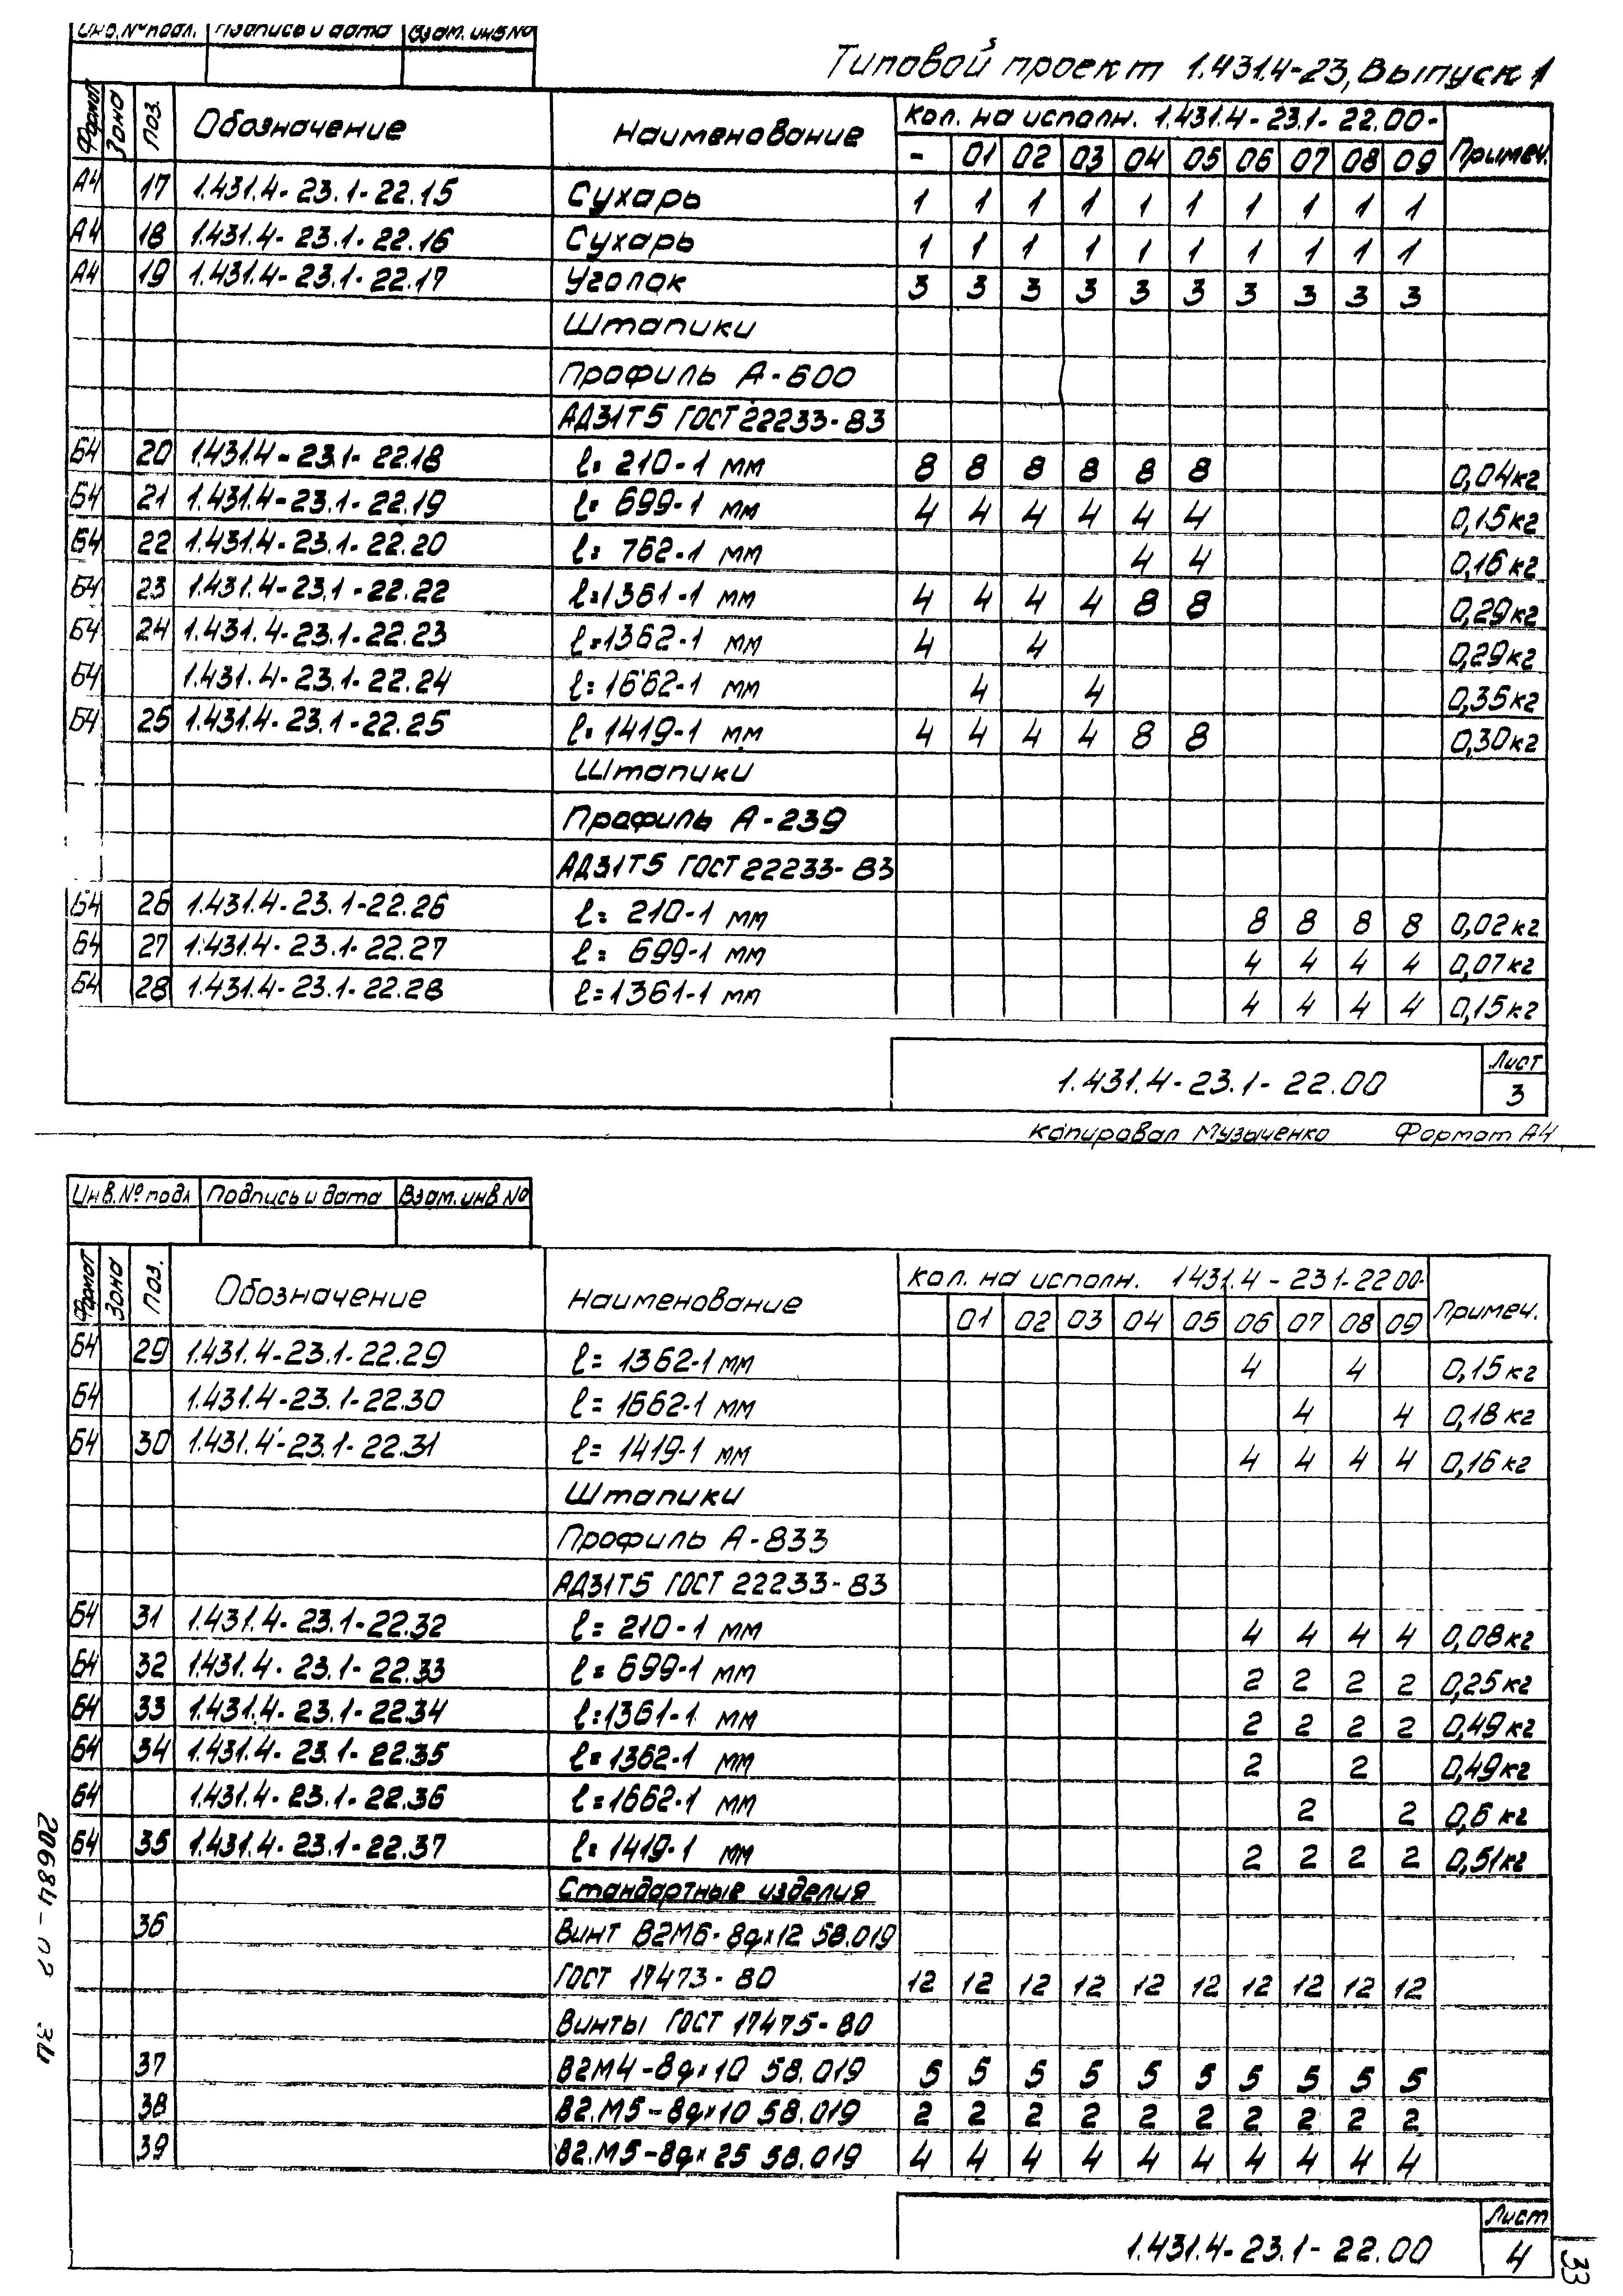 Инв.№подл. Подпись и дата Взам. инв №
Типовой проект 1.431.4-23, Выпуск 1
Формат Зона Поз. Обозначение Наименование Кол. на исполн. 1.431.4-23.1-22.00- Примеч.
- 01 02 03 04 05 06 07 08 09
А4 17 1.431.4-23.1-22.15 Сухарь 1 1 1 1 1 1 1 1 1 1
А4 18 1.431.4-23.1-22.16 Сухарь 1 1 1 1 1 1 1 1 1 1
А4 19 1.431.4-23.1-22.17 Уголок 3 3 3 3 3 3 3 3 3 3
Штапики
Профиль А-600
АД31Т5 ГОСТ 22233-83
Б4 20 1.431.4-23.1-22.18 ℓ= 210-1 мм 8 8 8 8 8 8 0,04кг
Б4 21 1.431.4-23.1-22.19 ℓ= 699-1 мм 4 4 4 4 4 4 0,15кг
Б4 22 1.431.4-23.1-22.20 ℓ= 762-1 мм 4 4 0,16кг
Б4 23 1.431.4-23.1-22.22 ℓ=1361-1 мм 4 4 4 4 8 8 0,29кг
Б4 24 1.431.4-23.1-22.23 ℓ=1362-1 мм 4 4 0,29кг
Б4 1.431.4-23.1-22.24 ℓ=1662-1 мм 4 4 0,35кг
Б4 25 1.431.4-23.1-22.25 ℓ=1419-1 мм 4 4 4 4 8 8 0,30кг
Штапики
Профиль А-239
АД31Т5 ГОСТ 22233-83
Б4 26 1.431.4-23.1-22.26 ℓ= 210-1 мм 8 8 8 8 0,02кг
Б4 27 1.431.4-23.1-22.27 ℓ= 699-1 мм 4 4 4 4 0,07кг
Б4 28 1.431.4-23.1-22.28 ℓ=1361-1 мм 4 4 4 4 0,15кг
1.431.4-23.1-22.00 Лист 3
Копировал Музыченко Формат А4
Инв.№ подл Подпись и дата Взам. инв №
Формат Зона Поз. Обозначение Наименование Кол. на исполн. 1431.4-231-2200- Примеч.
01 02 03 04 05 06 07 08 09
Б4 29 1.431.4-23.1-22.29 ℓ= 1362-1 мм 4 4 0,15кг
Б4 1.431.4-23.1-22.30 ℓ= 1662-1 мм 4 4 0,18кг
Б4 30 1.431.4-23.1-22.31 ℓ= 1419-1 мм 4 4 4 4 0,16кг
Штапики
Профиль А-833
АД31Т5 ГОСТ 22233-83
Б4 31 1.431.4-23.1-22.32 ℓ= 210-1 мм 4 4 4 4 0,08кг
Б4 32 1.431.4-23.1-22.33 ℓ= 699-1 мм 2 2 2 2 0,25кг
Б4 33 1.431.4-23.1-22.34 ℓ=1361-1 мм 2 2 2 2 0,49кг
Б4 34 1.431.4-23.1-22.35 ℓ=1362-1 мм 2 2 0,49кг
Б4 1.431.4-23.1-22.36 ℓ=1662-1 мм 2 2 0,6 кг
Б4 35 1.431.4-23.1-22.37 ℓ=1419-1 мм 2 2 2 2 0,51кг
Стандартные изделия
36 Винт В2М6-8gх12 58.019
ГОСТ 17473-80 12 12 12 12 12 12 12 12 12 12
Винты ГОСТ 17475-80
37 В2М4-8gх10 58.019 5 5 5 5 5 5 5 5 5 5
38 В2.М5-8gх10 58.019 2 2 2 2 2 2 2 2 2 2
39 В2.М5-8gх25 58.019 4 4 4 4 4 4 4 4 4 4
1.431.4-23.1-22.00 Лист 4
20684-
34
33